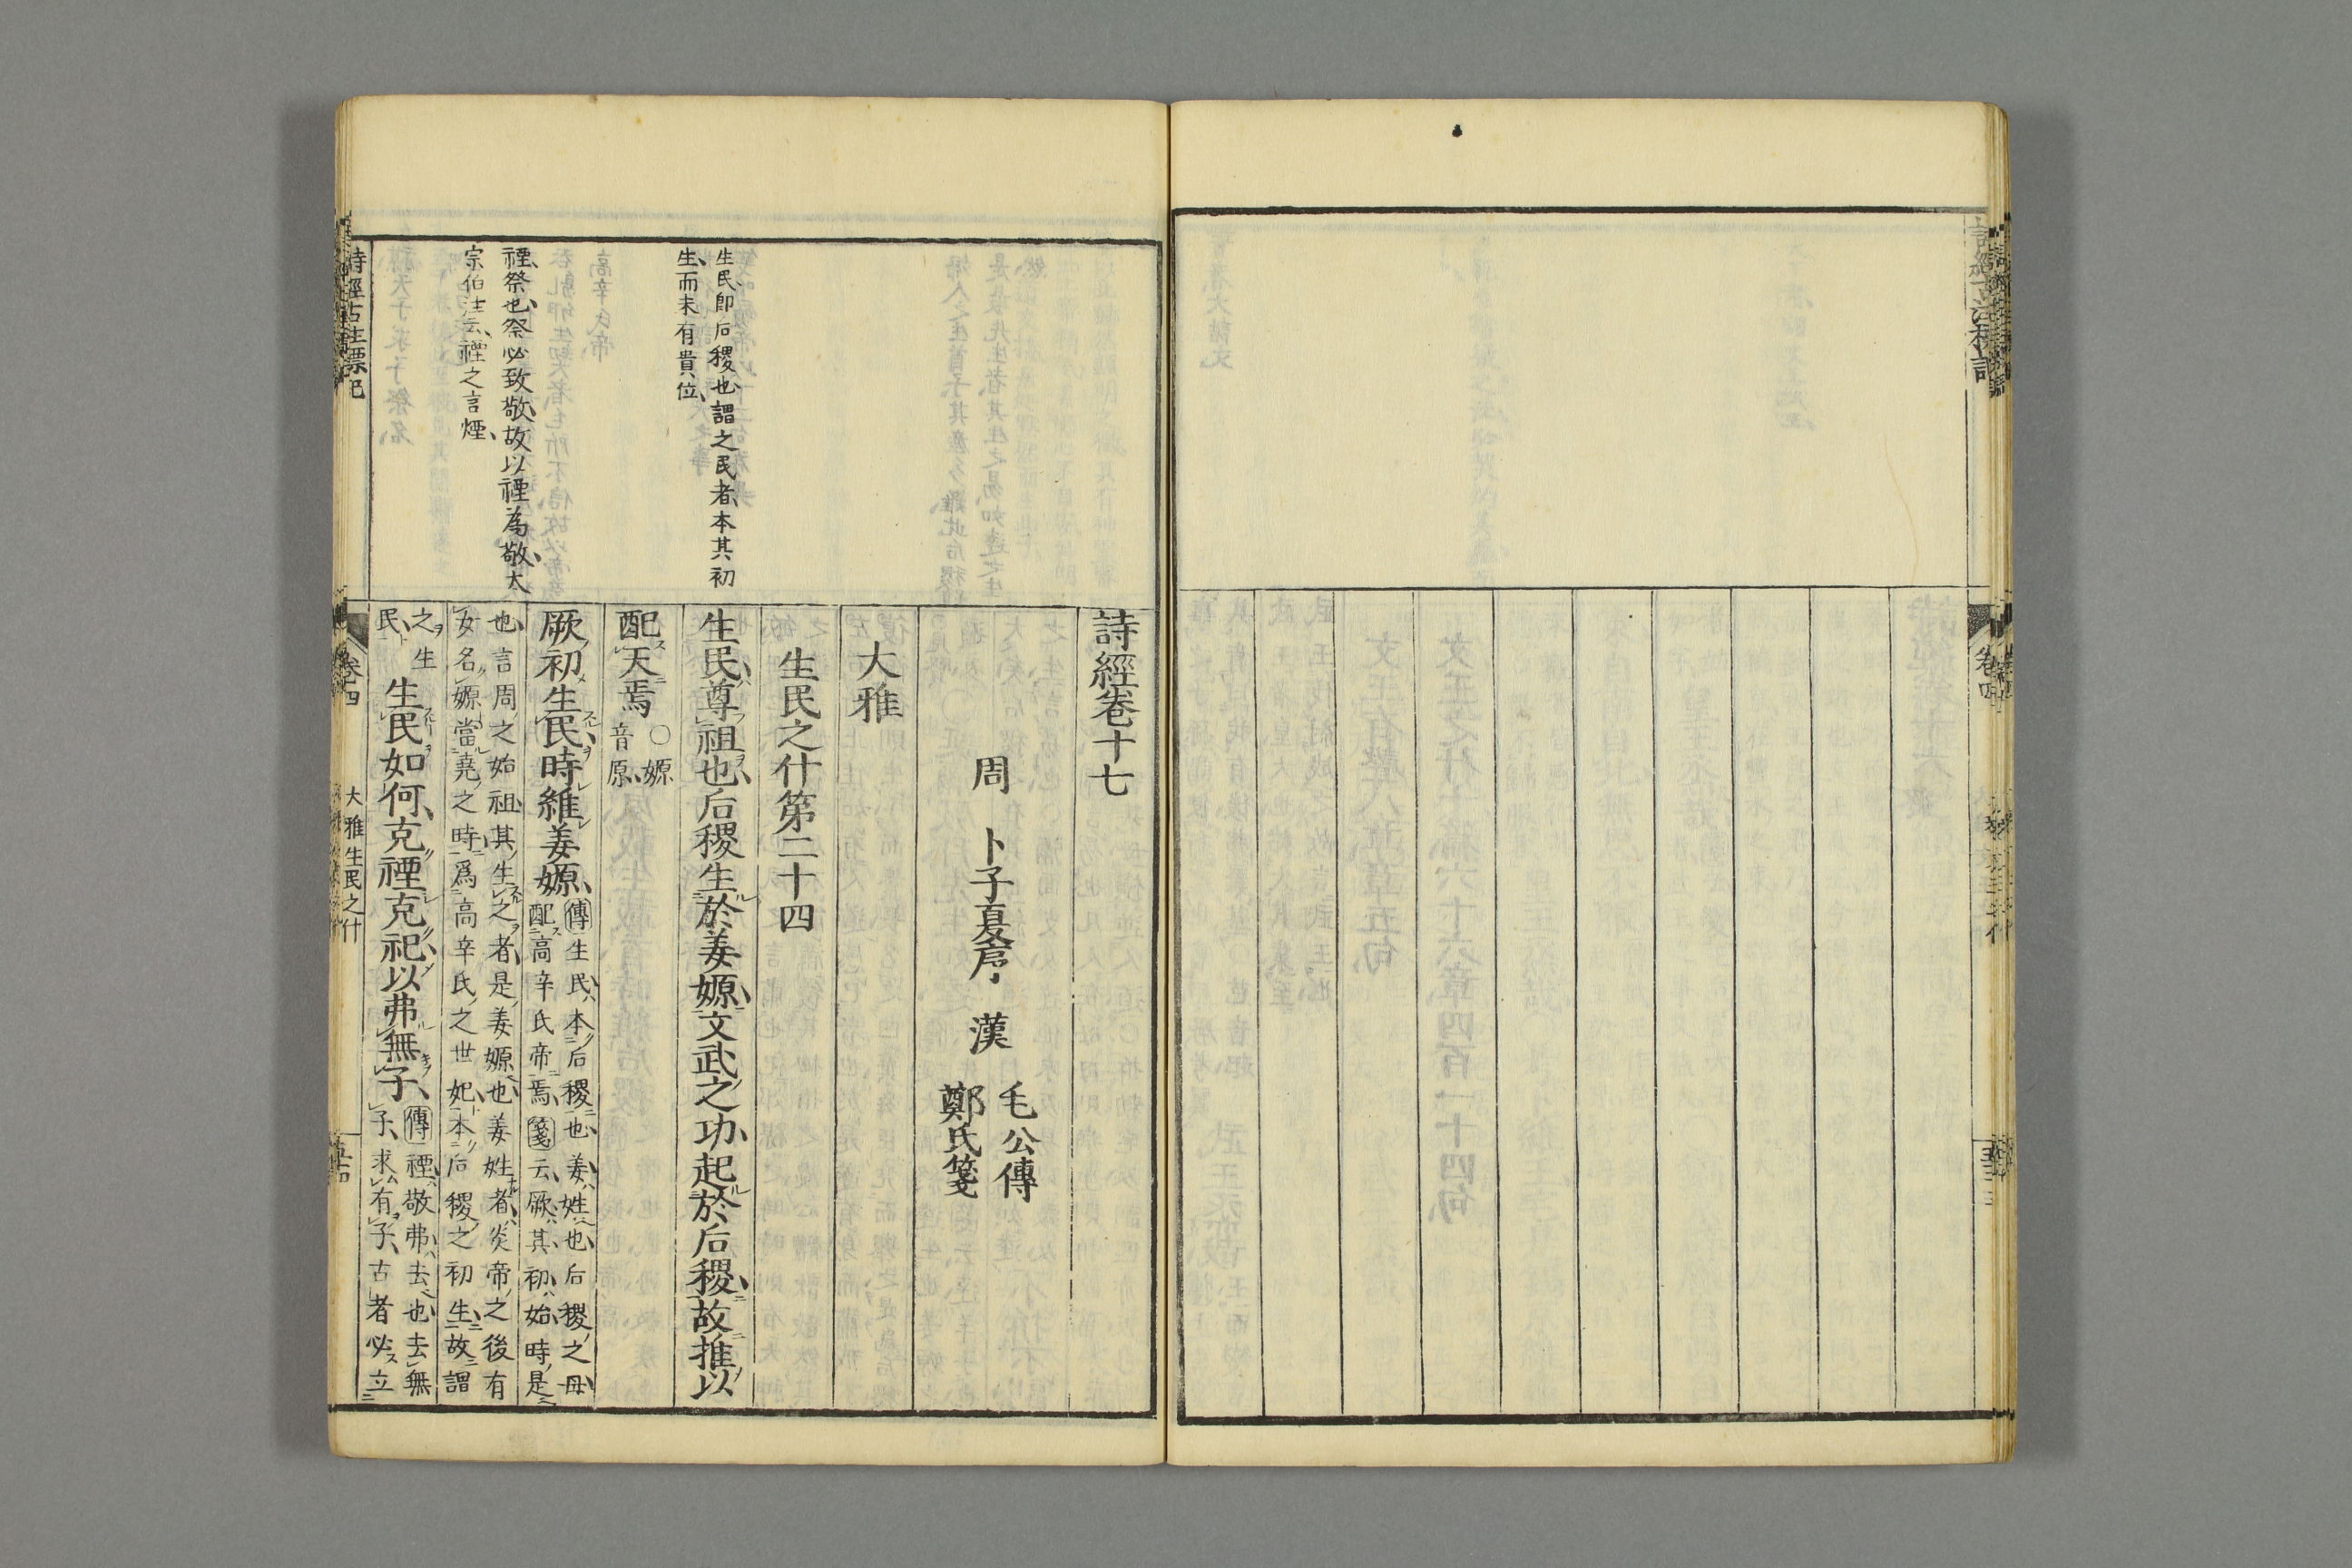 詩經卷十七
周　卜子夏序　漢　毛公傳
鄭氏箋
大雅
生民之什第二十四
生民、尊祖也、后稷生於姜嫄、文武之功、起於后稷、故推以
配天焉
○嫄
音原、
厥初生民、時維姜嫄、
傳生民、本后稷也、姜、姓也、后稷之母、
配高辛氏帝焉、箋云、厥、其、初、始、時、是
也、言周之始祖、其生之者、是姜嫄也、姜姓者、炎帝之後、有
女名嫄、當堯之時、爲高辛氏之世妃、本后稷之初生、故謂
之生
民、
生民如何、克禋克祀、以弗無子、
傳禋、敬、弗、去也、去無
子、求有子、古者必立
生民、卽后稷也、謂之民者、本其初
生而未有貴位、
禋、祭也、祭必致敬、故以禋爲敬、大
宗伯注云、禋之言煙、
詩經古注標記
卷四
大雅生民之什
卷四